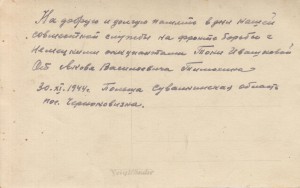 На добрую и долгую память в дни нашей
совместной службы на фронте борьбы с
немецкими оккупантами Тони Ивашковой
От Якова Васильевича Тимохина
30.XI.1944г. Польша Сувалкинская область
пос.